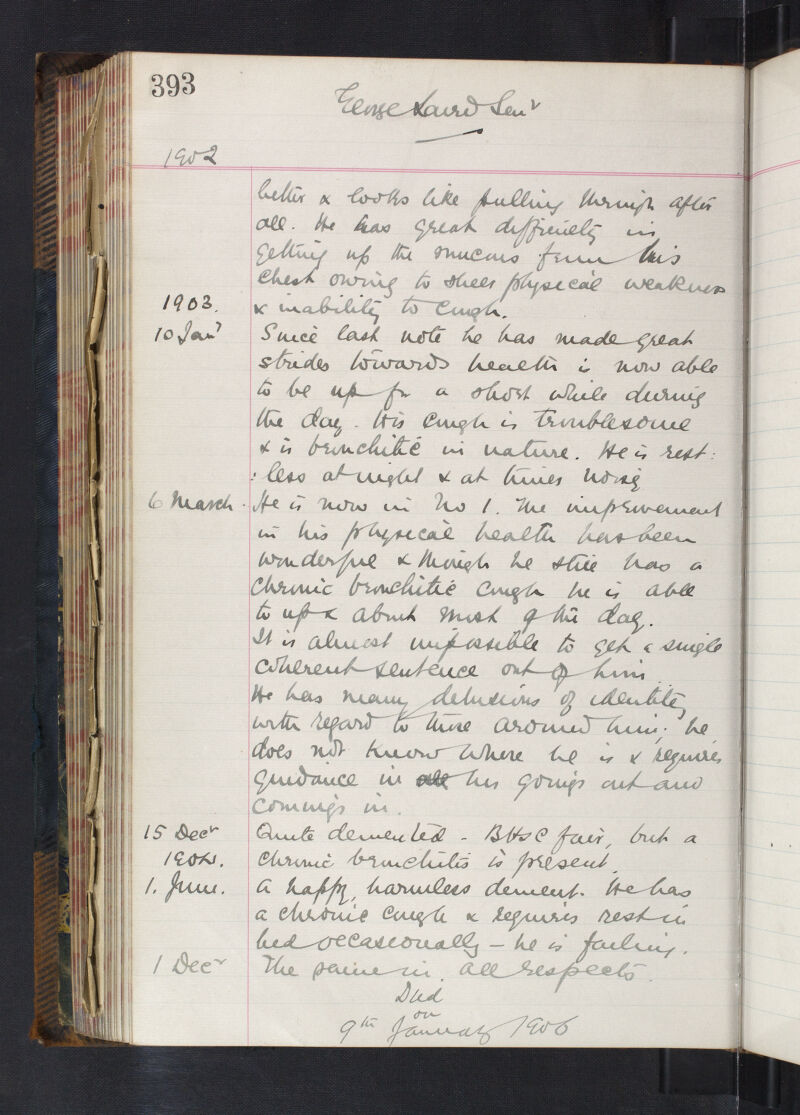 393
George Laird Senr
1902
better & looks like pulling through after
all. He has great difficulty in
getting up the mucus from his
chest owing to sheer physical weakness
1903. & inability to cough.
10 Jany Since last note he has made great
strides towards health is now able
to be up for a short while during
the day. His cough is troublesome
& is bronchitic in nature. He is rest:
:less at night & at times noisy
6 March. He is now in No 1. The improvement
in his physical health has been
wonderful & though he still has a
chronic bronchitic cough he is able
to up & about most of the day.
It is almost impossible to get a single
coherent sentence out of him.
He has many delusions of identity
with regard to those around him; he
does not know where he is & requires
guidance in all his goings out and
comings in.
15 Decr Quite demented - B H & C fair, but a
1904. chronic bronchitis is present.
1. June. A happy, harmless dement. He has
a chronic cough & requires rest in
bed occasionally - he is failing.
1 Decr The same in all respects.
Died
on
9th January 1906